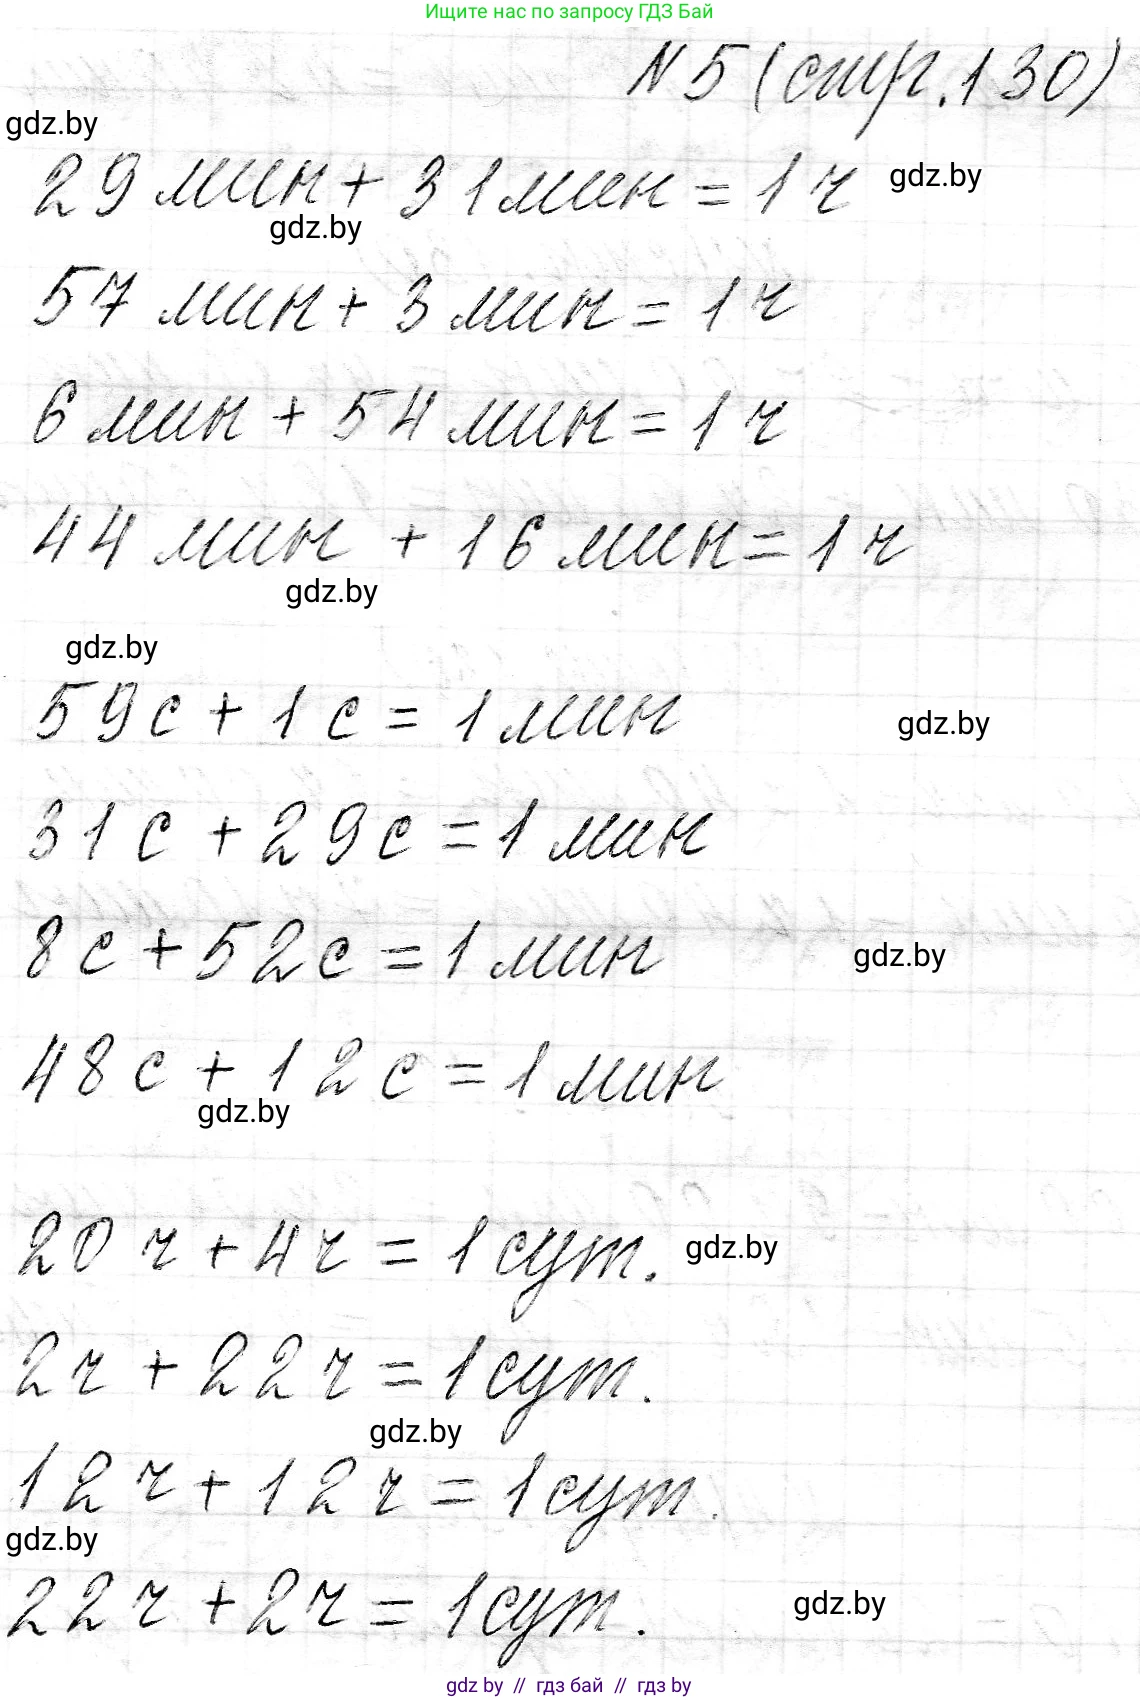 Ищите нас по запросу ГДЗ Бай
N 5 (стр. 130)
gdz.by
29 мин + 31 мин = 1 ч
gdz.by
gdz.by
57 мин + 3 мин = 1 ч
6 мин + 54 мин = 1 ч
44 мин + 16 мин = 1 ч
gdz.by
gdz.by
59 с + 1 с = 1 мин
gdz.by
31 с + 29 с = 1 мин
8 с + 52 с = 1 мин
gdz.by
48 с + 12 с = 1 мин
gdz.by
20 ч + 4 ч = 1 сут.
gdz.by
2 ч + 22 ч = 1 сут.
gdz.by
12 ч + 12 ч = 1 сут.
gdz.by
22 ч + 2 ч = 1 сут.
gdz.by
gdz by // гдз бай // gdz.by